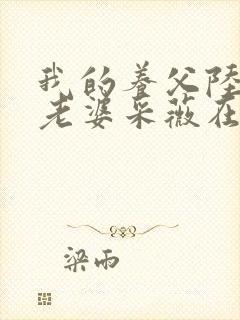 我的养父陸
老婆采薇在
梁雨